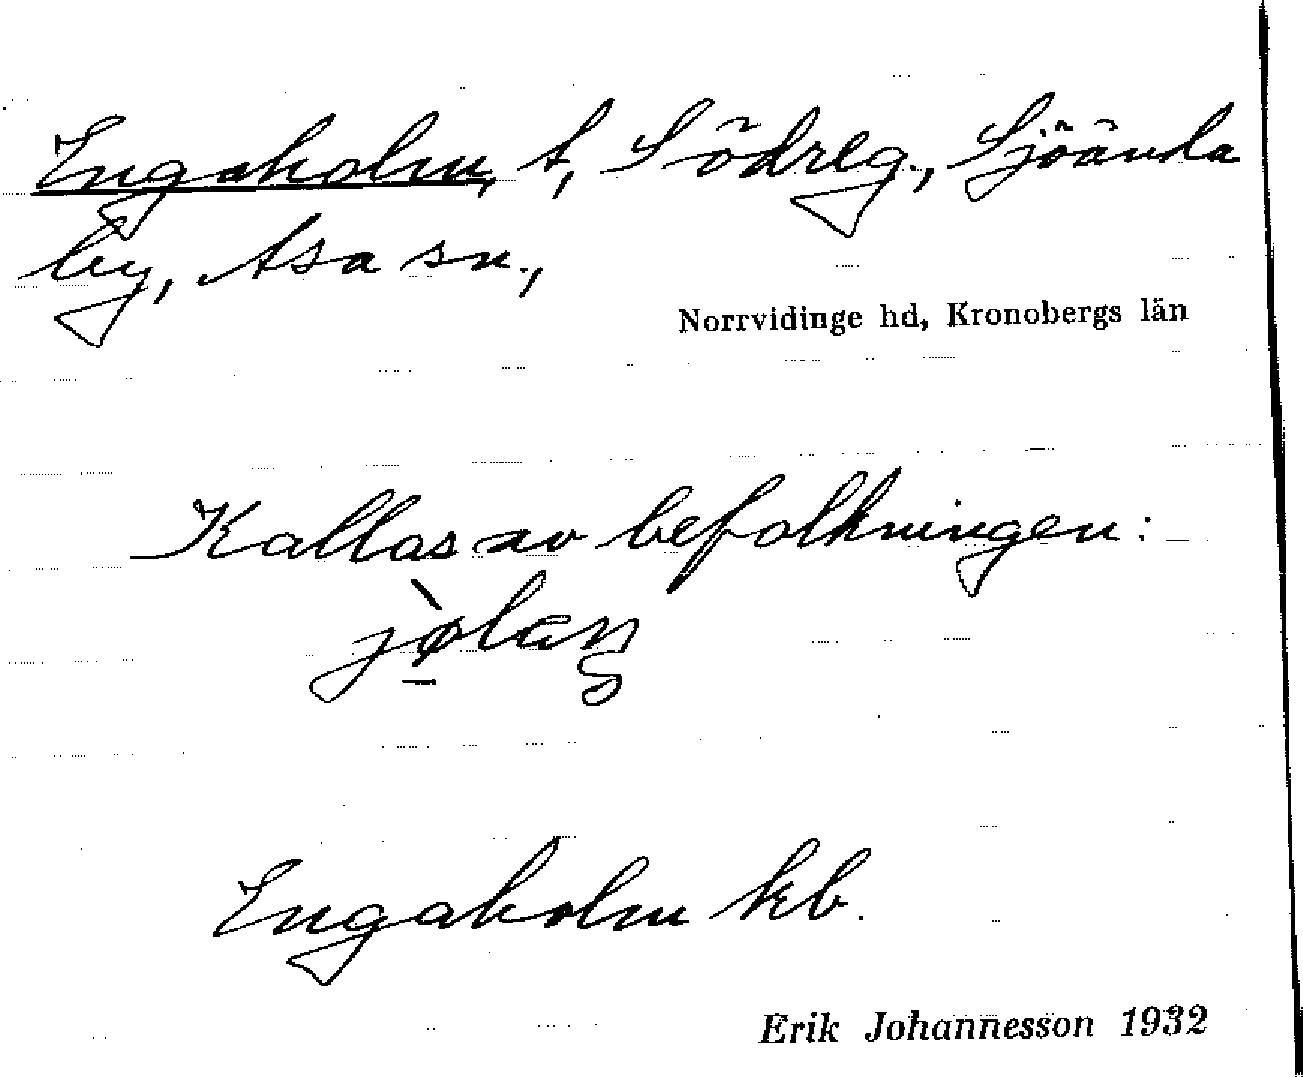 Engaholm, t, Södreg., Sjöända
by, Asa sn.,
Norrvidinge hd, Kronobergs län
Kallas av befolkningen:
Engaholm kb.
Erik Johannesson 1932